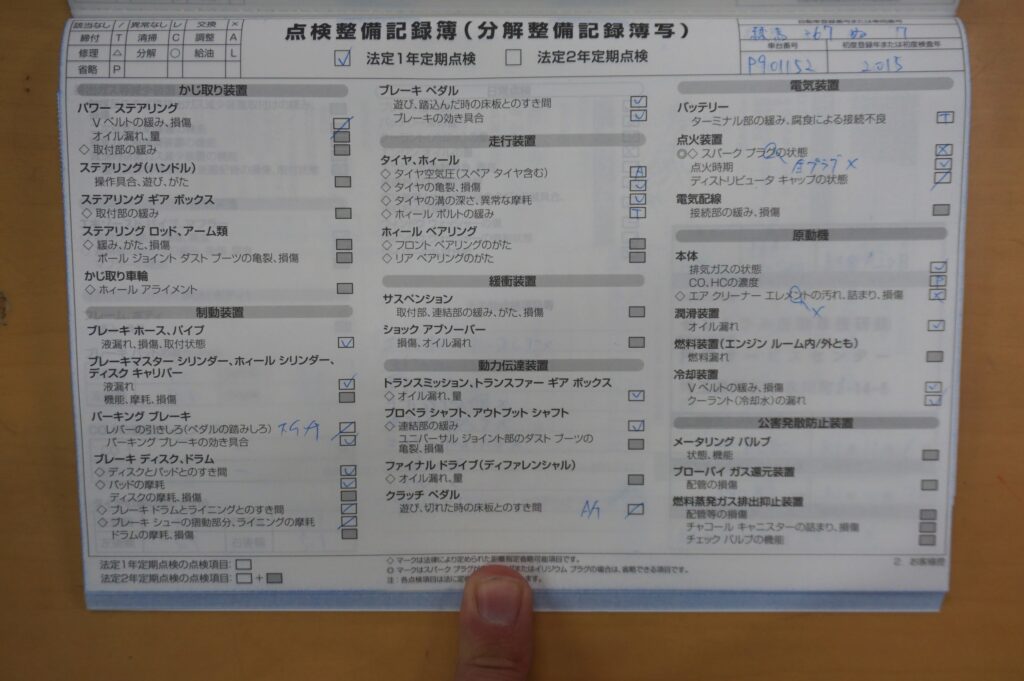 該当なし / 異常なし レ 交換 ×
締付 T 清掃 C 調整 A
修理 △ 分解 ○ 給油 L
省略 P
点検整備記録簿(分解整備記録簿写)
✓ 法定1年定期点検 □ 法定2年定期点検
自動車登録番号または車両番号
車台番号 初度登録年または初度検査年
P901152 2015
かじ取り装置
パワー ステアリング
V ベルトの緩み、損傷
オイル漏れ、量
◇ 取付部の緩み
ステアリング(ハンドル)
操作具合、遊び、がた
ステアリング ギア ボックス
◇ 取付部の緩み
ステアリング ロッド、アーム類
◇ 緩み、がた、損傷
ボール ジョイント ダスト ブーツの亀裂、損傷
かじ取り車輪
◇ ホィール アライメント
制動装置
ブレーキ ホース、パイプ
液漏れ、損傷、取付状態
ブレーキマスター シリンダー、ホィール シリンダー、
ディスク キャリパー
液漏れ
機能、摩耗、損傷
パーキング ブレーキ
レバーの引きしろ(ペダルの踏みしろ)
パーキング ブレーキの効き具合
ブレーキ ディスク、ドラム
◇ ディスクとパッドとのすき間
◇ パッドの摩耗
ディスクの摩耗、損傷
◇ ブレーキ ドラムとライニングとのすき間
◇ ブレーキ シューの摺動部分、ライニングの摩耗
ドラムの摩耗、損傷
ブレーキ ペダル
遊び、踏込んだ時の床板とのすき間
ブレーキの効き具合
走行装置
タイヤ、ホィール
◇ タイヤ空気圧(スペア タイヤ含む) A
◇ タイヤの亀裂、損傷
◇ タイヤの溝の深さ、異常な摩耗
◇ ホィール ボルトの緩み T
ホィール ベアリング
◇ フロント ベアリングのがた
◇ リア ベアリングのがた
緩衝装置
サスペンション
取付部、連結部の緩み、がた、損傷
ショック アブソーバー
損傷、オイル漏れ
動力伝達装置
トランスミッション、トランスファー ギア ボックス
◇ オイル漏れ、量
プロペラ シャフト、アウトプット シャフト
◇ 連結部の緩み
ユニバーサル ジョイント部のダスト ブーツの
亀裂、損傷
ファイナル ドライブ(ディファレンシャル)
◇ オイル漏れ、量
クラッチ ペダル
遊び、切れた時の床板とのすき間 A/T
電気装置
バッテリー
ターミナル部の緩み、腐食による接続不良 T
点火装置
◎◇ スパーク プラグの状態 ×
点火時期
ディストリビュータ キャップの状態
電気配線
接続部の緩み、損傷
原動機
本体
排気ガスの状態
CO、HCの濃度
◇ エア クリーナー エレメントの汚れ、詰まり、損傷 ×
潤滑装置
オイル漏れ
燃料装置(エンジン ルーム内/外とも)
燃料漏れ
冷却装置
V ベルトの緩み、損傷
クーラント(冷却水)の漏れ
公害発散防止装置
メータリング バルブ
状態、機能
ブローバイ ガス還元装置
配管の損傷
燃料蒸発ガス排出抑止装置
配管等の損傷
チャコール キャニスターの詰まり、損傷
チェック バルブの機能
法定1年定期点検の点検項目:□
法定2年定期点検の点検項目:□+■
◇ マークは法律により定められた距離指定省略可能項目です。
◎ マークはスパーク プラグが またはイリジウム プラグの場合は、省略できる項目です。
注:各点検項目は法に定め ます。
2. お客様控